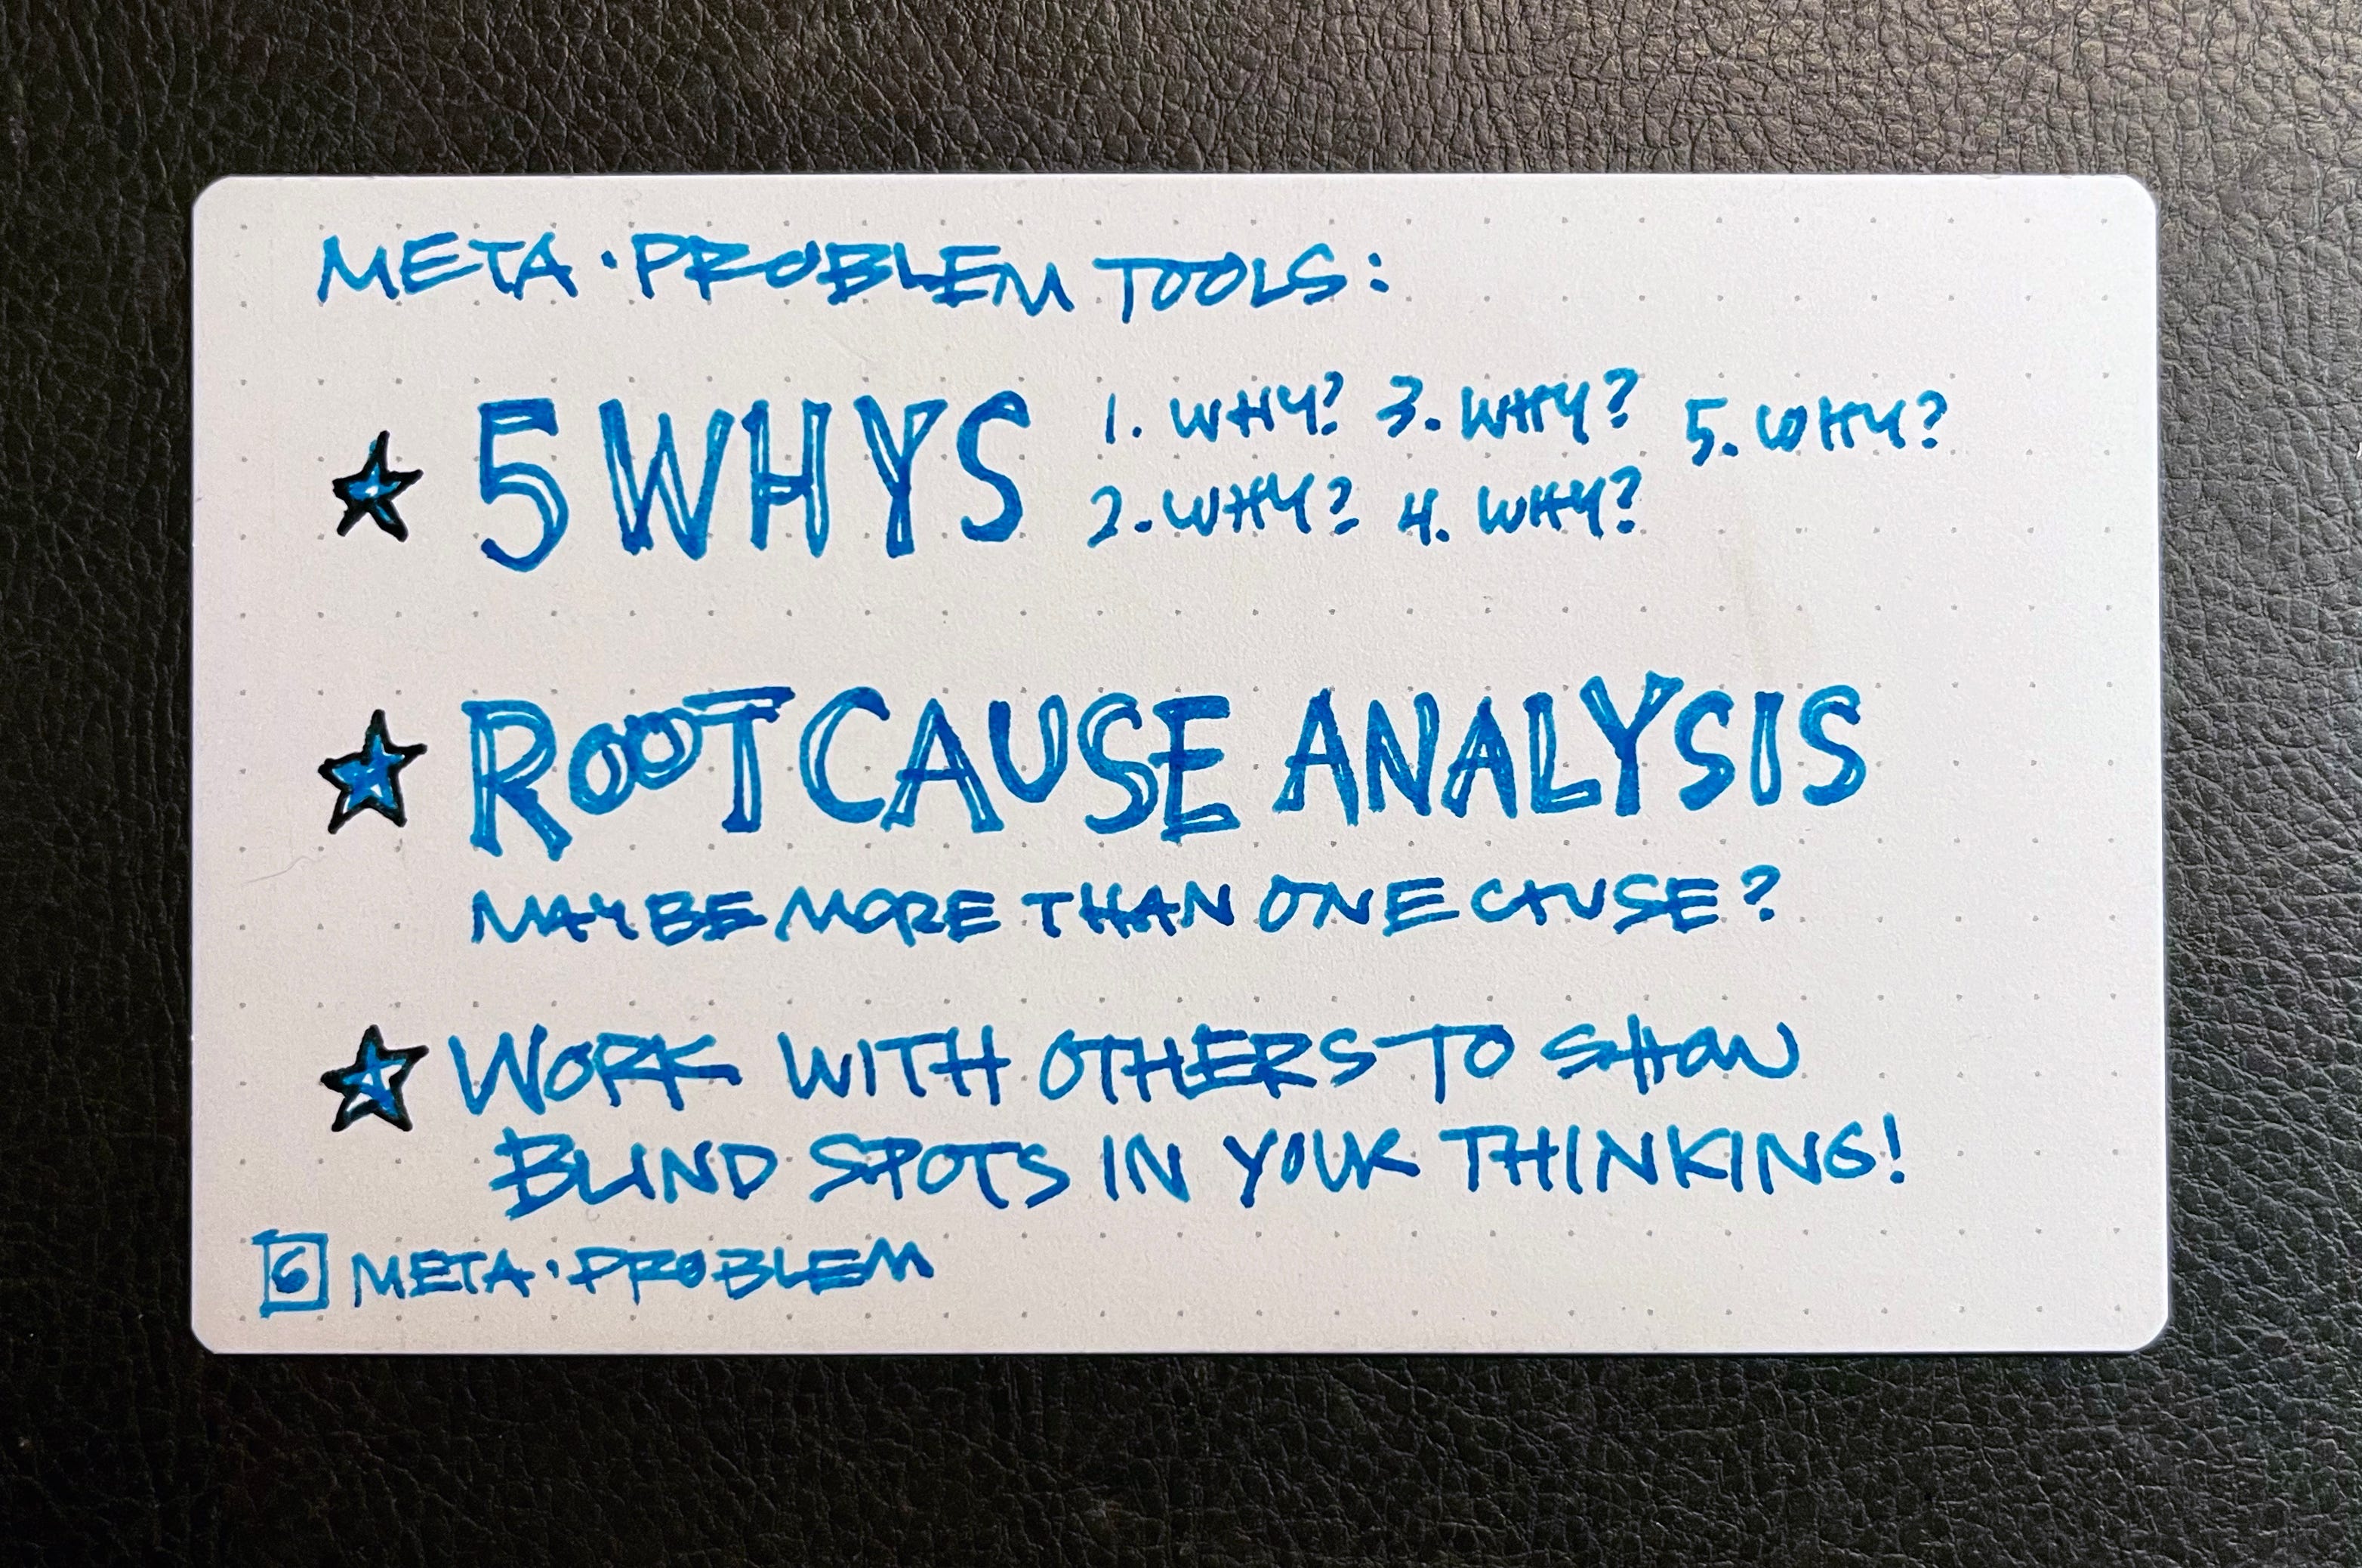 META·PROBLEM TOOLS:
5 WHYS 1. WHY? 3. WHY? 5. WHY?
2. WHY? 4. WHY?
ROOT CAUSE ANALYSIS
MAYBE MORE THAN ONE CAUSE?
WORK WITH OTHERS TO SHOW
BLIND SPOTS IN YOUR THINKING!
6 META·PROBLEM